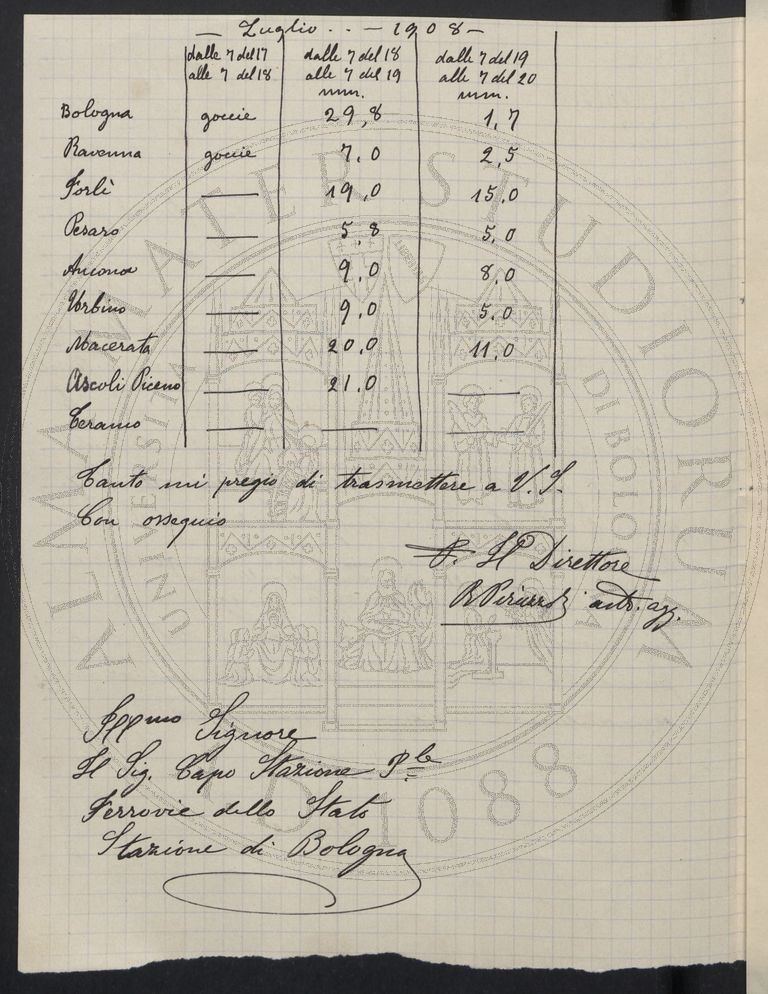 — Luglio . . — 1908 —
dalle 7 del 17 dalle 7 del 18 dalle 7 del 19
alle 7 del 18 alle 7 del 19 alle 7 del 20
mm. mm.
Bologna goccie 29,8 1,7
Ravenna goccie 7,0 2,5
Forlì — 19,0 15,0
Pesaro — 5,8 5,0
Ancona — 9,0 8,0
Urbino — 9,0 5,0
Macerata — 20,0 11,0
Ascoli Piceno — 21,0 —
Teramo — — —
Tanto mi pregio di trasmettere a V. S.
Con ossequio
P. Il Direttore
astr. agg.
Illmo Signore
Il Sig. Capo Stazione Ple
Ferrovie dello Stato
Stazione di Bologna
ALMA MATER STUDIORUM
UNIVERSITÀ DI BOLOGNA
A.D. 1088